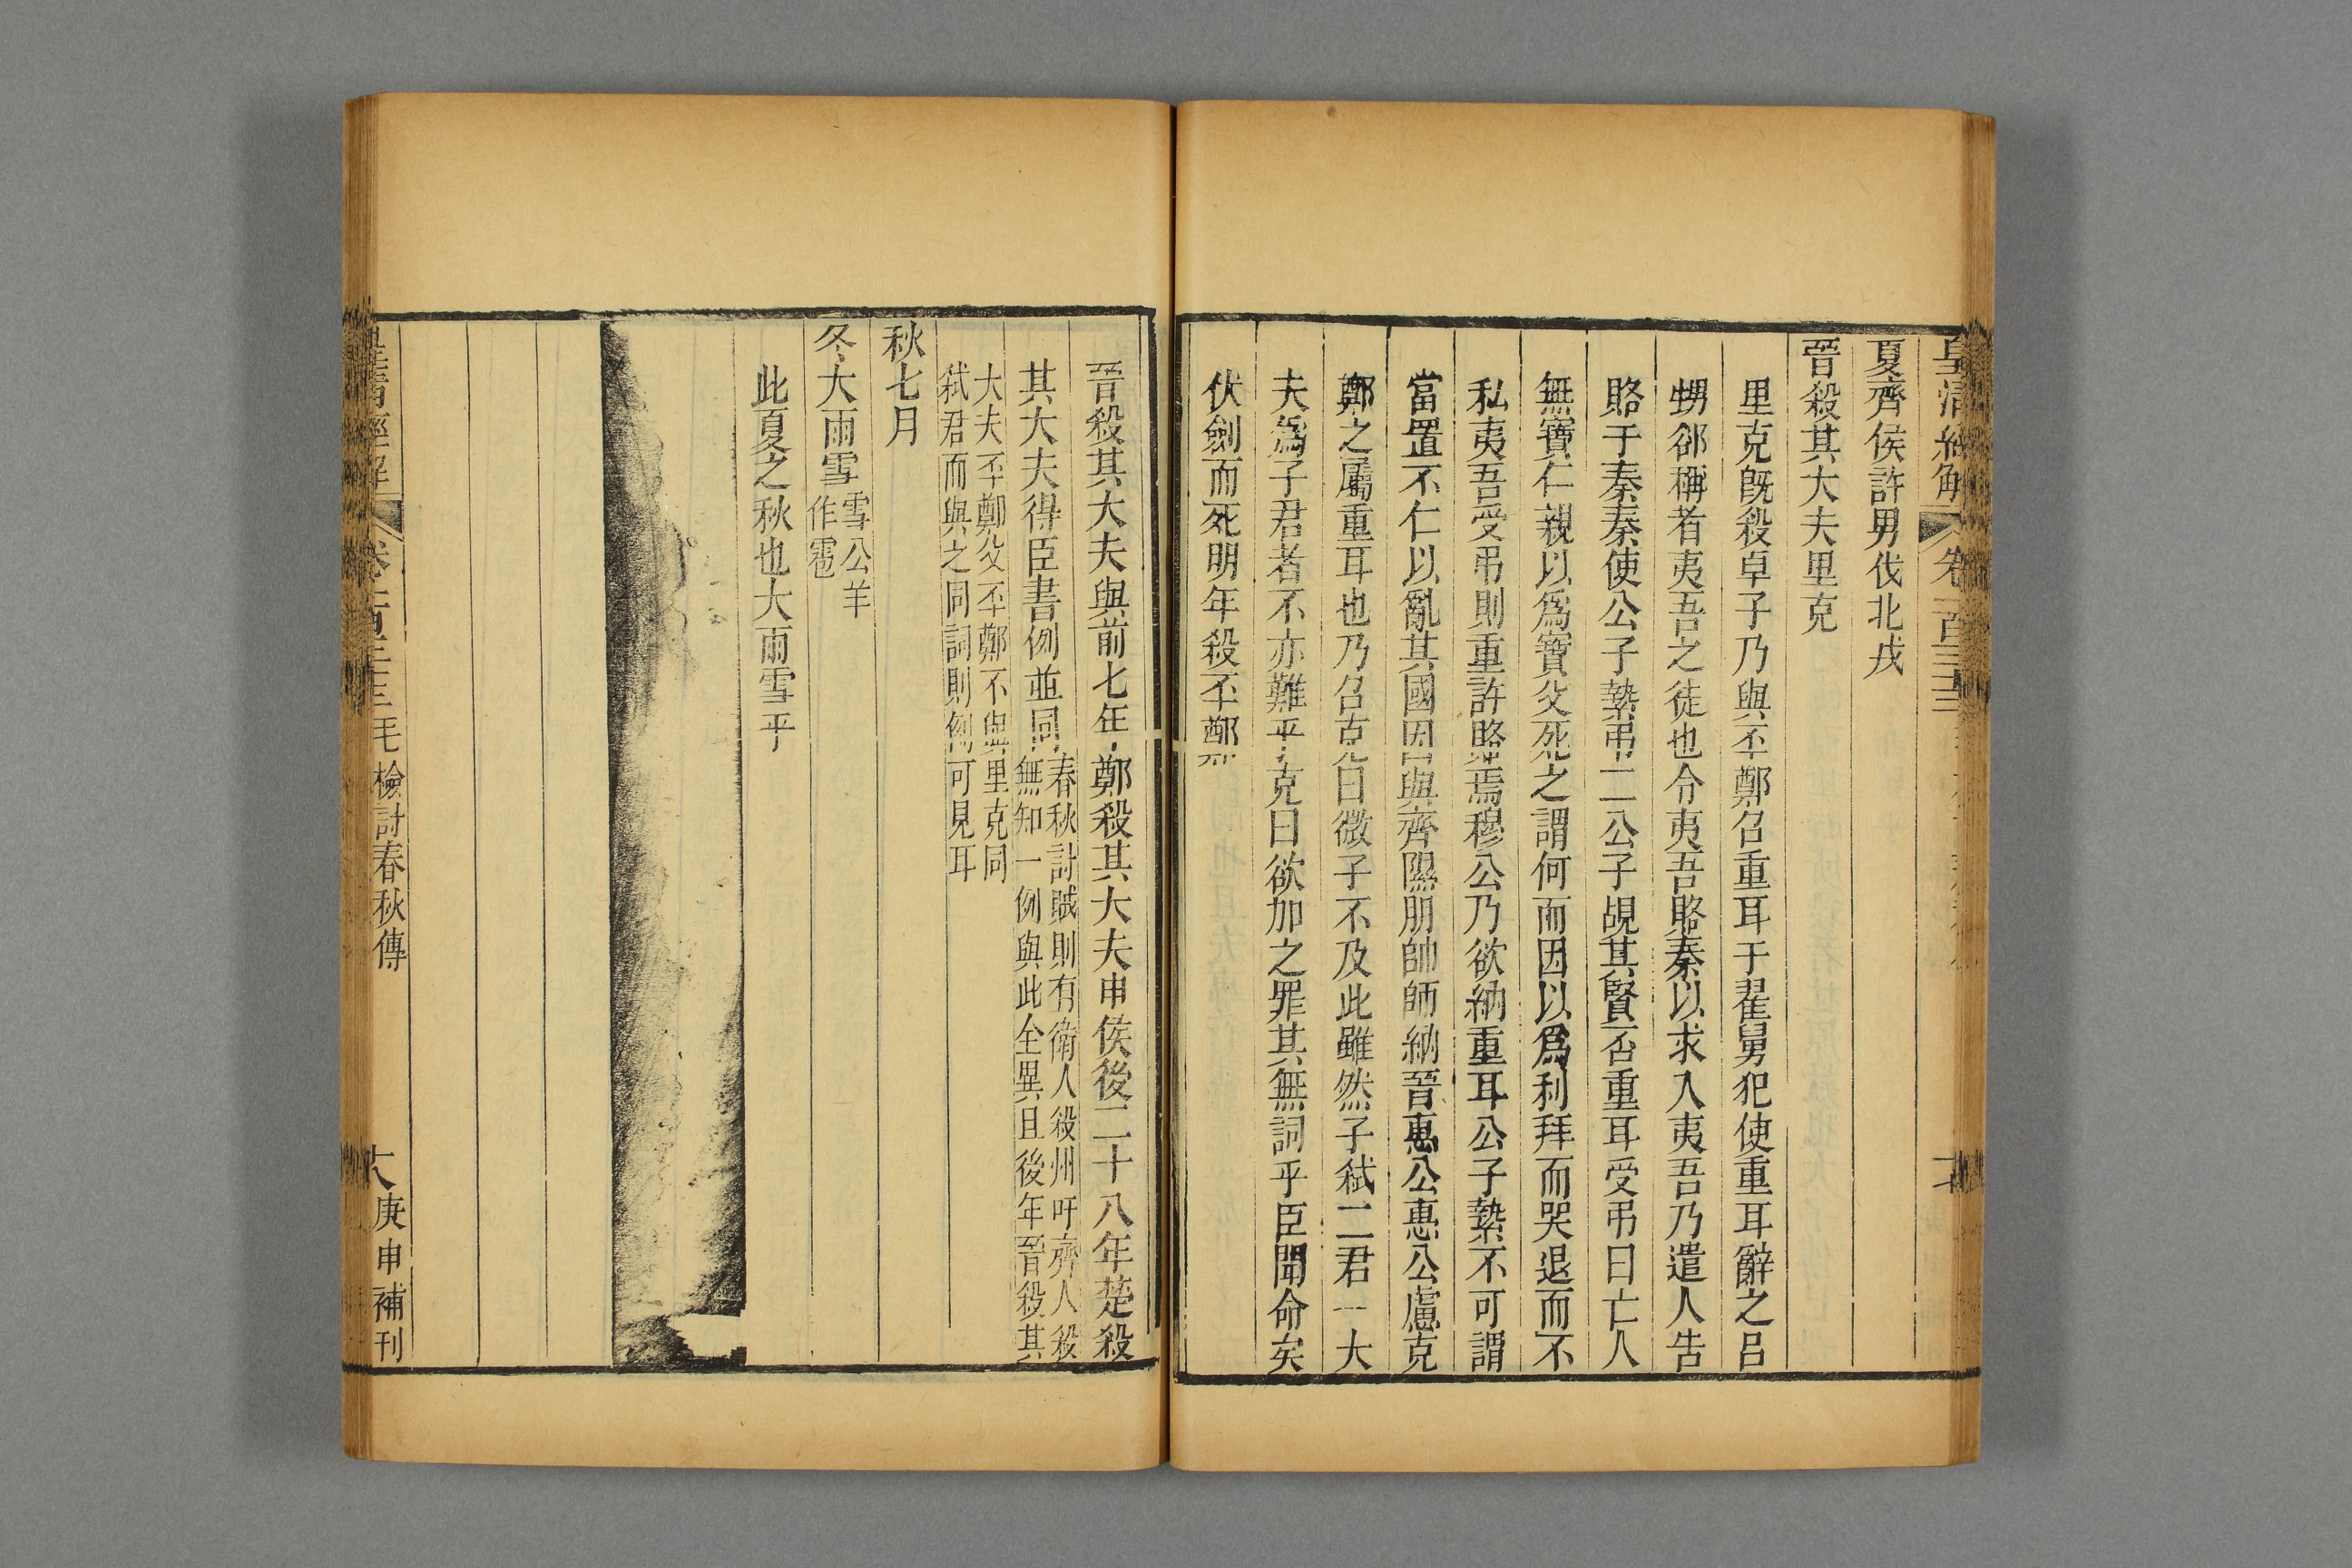 皇清經解
卷一百三十三
夏齊侯許男伐北戎
晉殺其大夫里克
里克既殺卓子乃與丕鄭召重耳于翟舅犯使重耳辭之呂
甥郤稱者夷吾之徒也令夷吾賂秦以求入夷吾乃遣人告
賂于秦秦使公子縶弔二公子覘其賢否重耳受弔曰亡人
無寶仁親以為寶父死之謂何而因以為利拜而哭退而不
私夷吾受弔則重許賂焉穆公乃欲納重耳公子縶不可謂
當置不仁以亂其國因與齊隰朋帥師納晉惠公惠公慮克
鄭之屬重耳也乃召克曰微子不及此雖然子弒二君一大
夫為子君者不亦難乎克曰欲加之罪其無詞乎臣聞命矣
伏劍而死明年殺丕鄭
晉殺其大夫與前七年鄭殺其大夫申侯後二十八年楚殺
其大夫得臣書例並同春秋討賊則有衛人殺州吁齊人殺
無知一例與此全異且後年晉殺其
大夫丕鄭父丕鄭不與里克同
弒君而與之同詞則例可見耳
秋七月
冬大雨雪雪公羊
作雹
此夏之秋也大雨雪乎
皇清經解
卷一百三十三
毛檢討春秋傳
大
庚申補刊